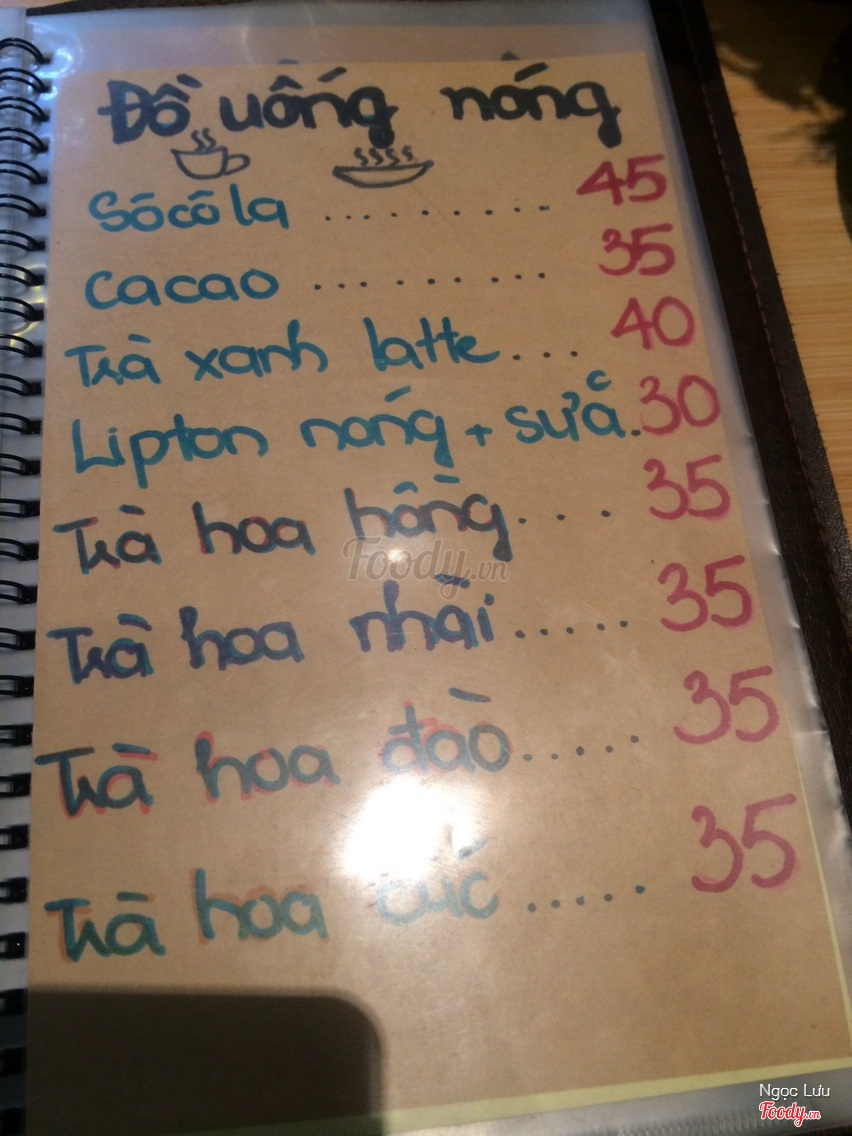 Đồ uống nóng
Sôcôla ......... 45
Cacao ......... 35
Trà xanh latte... 40
Lipton nóng + sữa.30
Trà hoa hồng.... 35
Trà hoa nhài..... 35
Trà hoa đào..... 35
Trà hoa cúc ..... 35
Foody.vn
Ngọc Lưu
Foody.vn